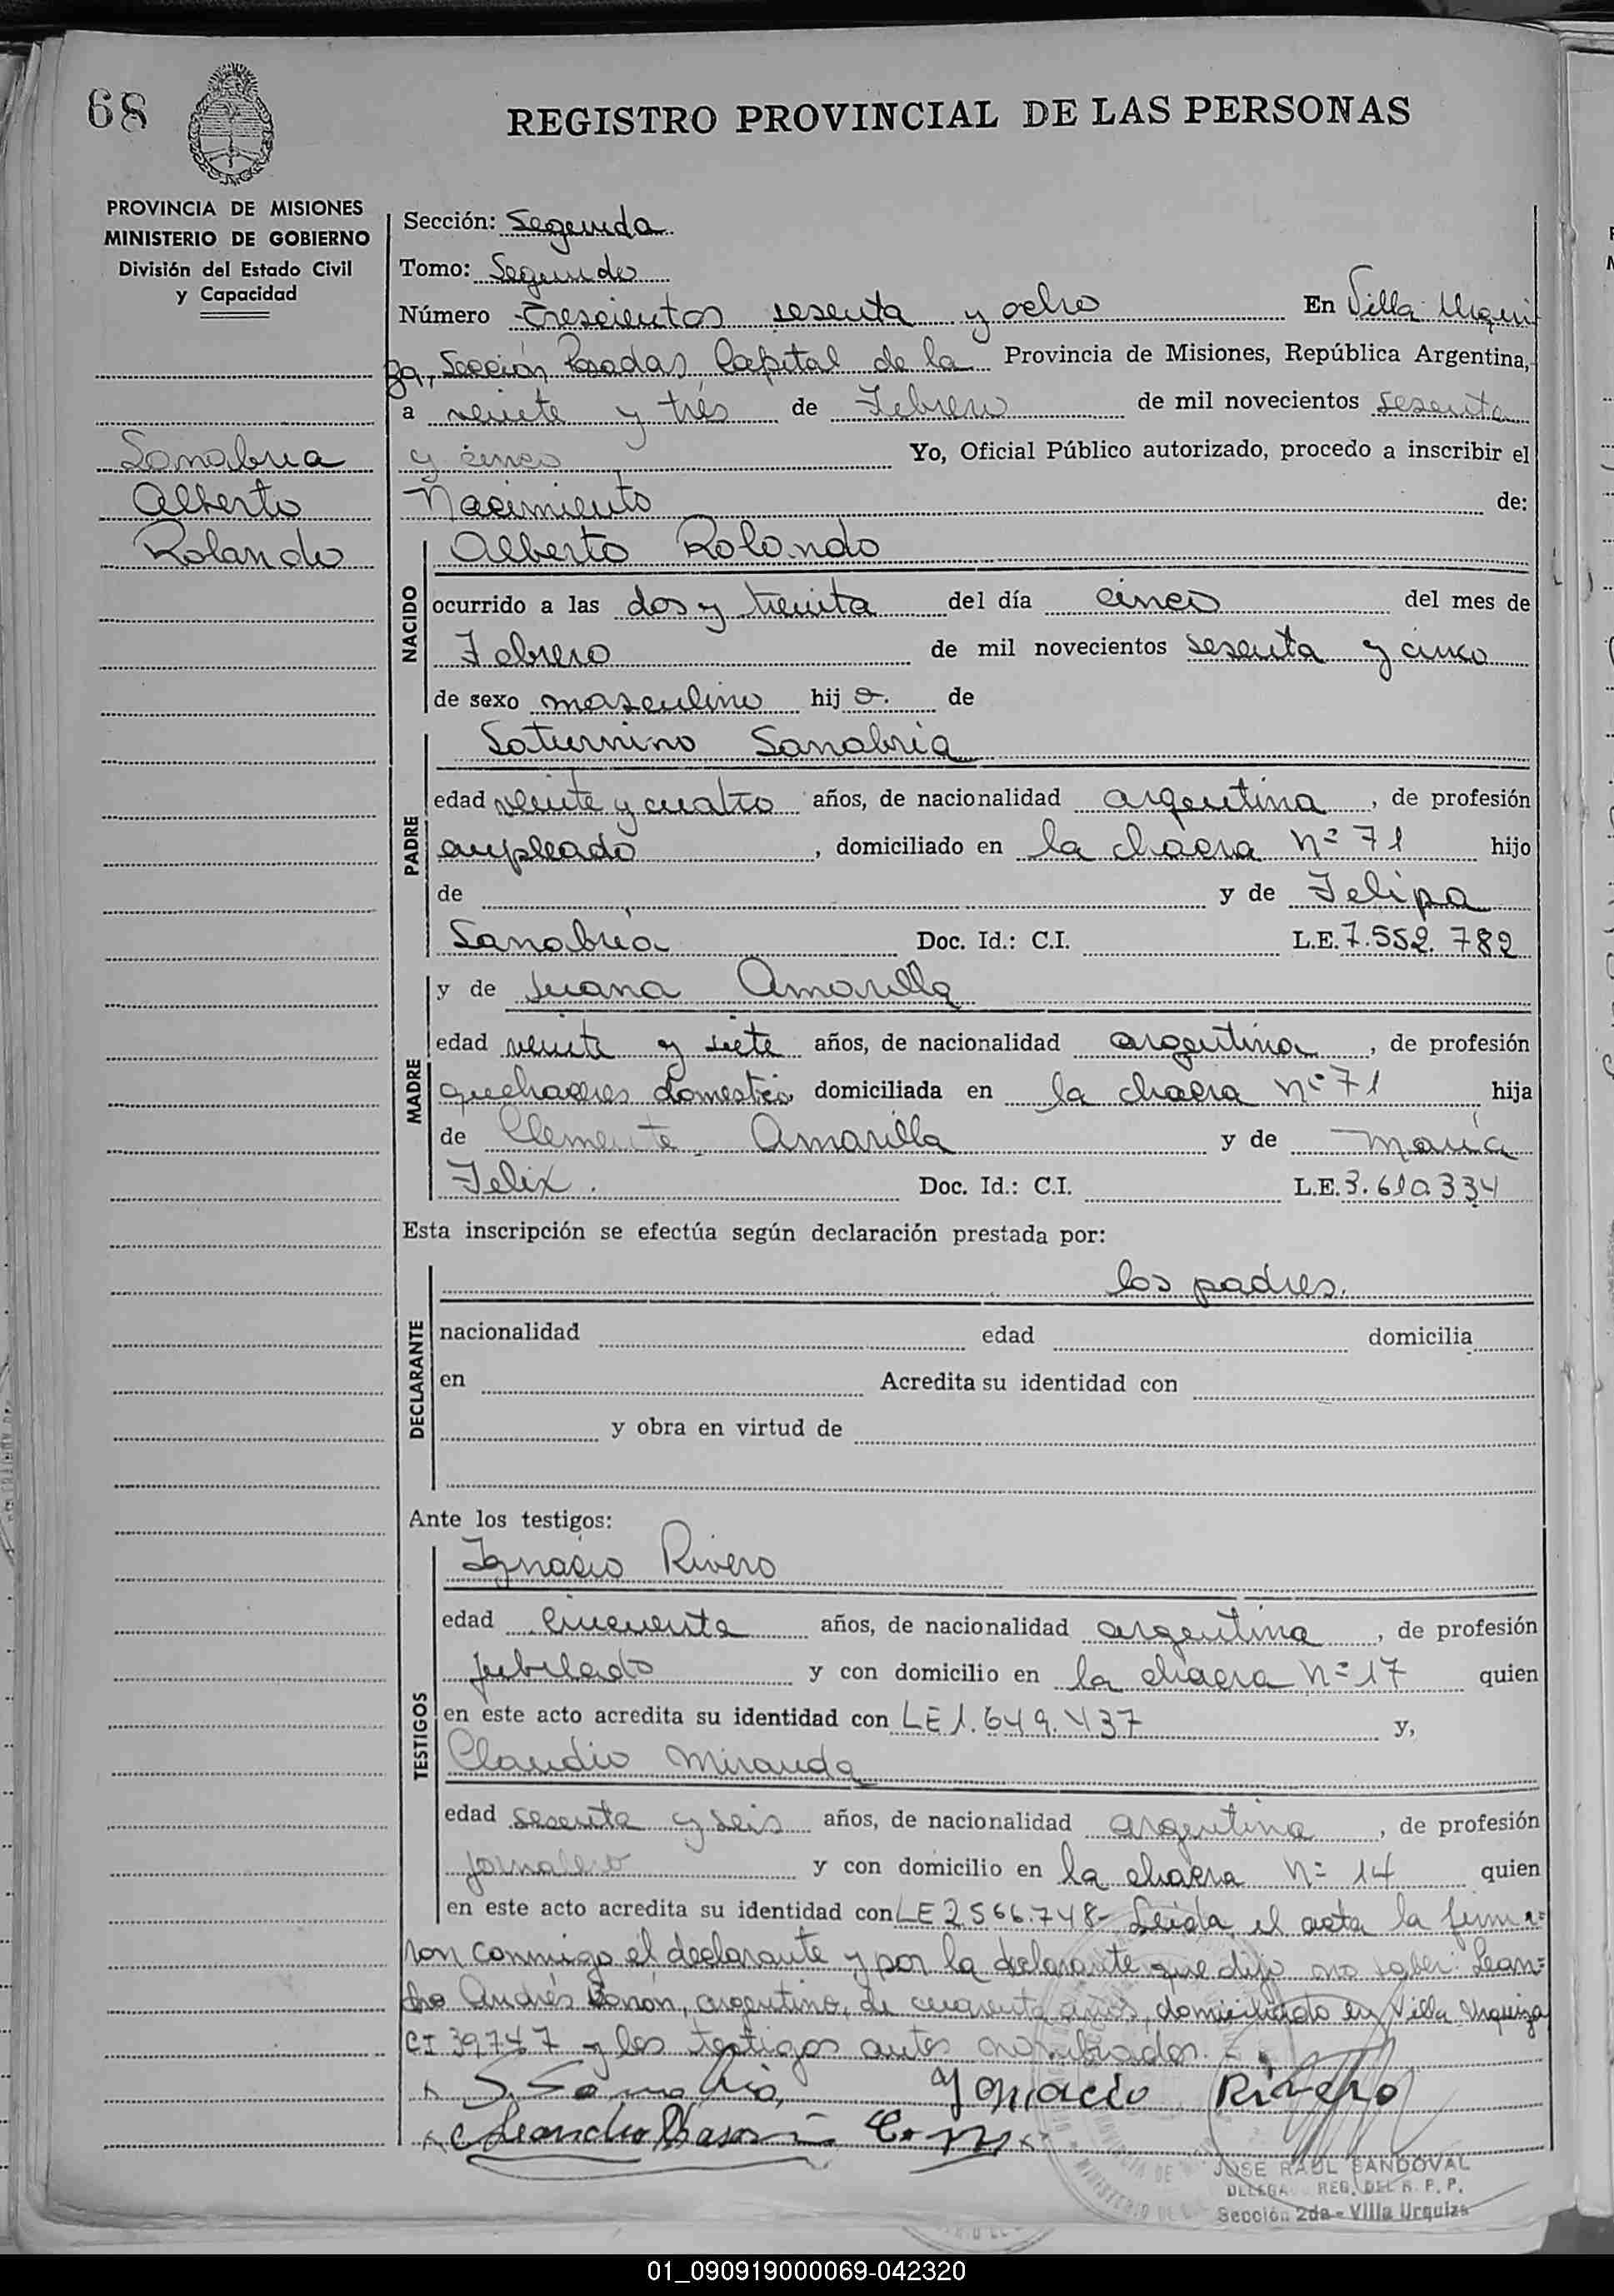 68
REGISTRO PROVINCIAL DE LAS PERSONAS
PROVINCIA DE MISIONES
MINISTERIO DE GOBIERNO
División del Estado Civil
y Capacidad
Sanabria
Alberto
Rolando
Sección: Segunda
Tomo: Segundo
Número Trescientos sesenta y ocho En Villa Urqui
za, Sección Posadas Capital de la Provincia de Misiones, República Argentina,
a veinte y tres de Febrero de mil novecientos sesenta
y cinco Yo, Oficial Público autorizado, procedo a inscribir el
Nacimiento de:
NACIDO
Alberto Rolando
ocurrido a las dos y treinta del día cinco del mes de
Febrero de mil novecientos sesenta y cinco
de sexo masculino hijo. de
PADRE
Saturnino Sanabria
edad veinte y cuatro años, de nacionalidad argentina, de profesión
empleado, domiciliado en la chacra Nº 71 hijo
de y de Felipa
Sanabria Doc. Id.: C.I. L.E. 7.552.782
MADRE
y de Juana Amarilla
edad veinte y siete años, de nacionalidad argentina, de profesión
quehaceres domestico domiciliada en la chacra nº 71 hija
de Clemente Amarilla y de María
Felix. Doc. Id.: C.I. L.E. 3.610.334
Esta inscripción se efectúa según declaración prestada por:
DECLARANTE
los padres.
nacionalidad edad domicilia
en Acredita su identidad con
y obra en virtud de
Ante los testigos:
TESTIGOS
Ignacio Rivero
edad cincuenta años, de nacionalidad argentina, de profesión
jubilado y con domicilio en la chacra Nº 17 quien
en este acto acredita su identidad con LE 1.649.437 y,
Claudio Miranda
edad sesenta y seis años, de nacionalidad argentina, de profesión
jornalero y con domicilio en la chacra Nº 14 quien
en este acto acredita su identidad con LE 2.566.748- Leida el acta la firma=
ron conmigo el declarante y por la declarante que dijo no saber: Lean=
dro Andrés argentino, de cuarenta años, domiciliado en Villa Urquiza
CI 39747 y los testigos antes nombrados.
S. Sanabria, Ygnacio Rivero
Leandro
JOSE RAUL SANDOVAL
REG. DEL R. P. P.
Sección 2da - Villa Urquiza
01_090919000069-042320